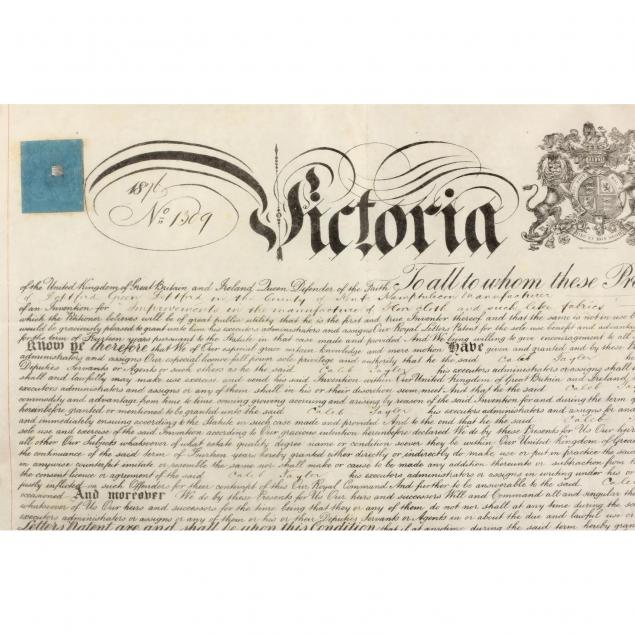 1876
No 1309
Victoria
of the United Kingdom of Great Britain and Ireland Queen Defender of the Faith To all to whom these Pre
of Green in the County of Kent Kamptulicon Manufacturer
of an Invention for Improvements in the manufacture of Floor cloth and such like fabrics
which the Petitioner believes will be of great public utility that he is the first and true Inventor thereof and that the same is not in use b
would be graciously pleased to grant unto him his executors administrators and assigns Our Royal Letters Patent for the sole use benefit and advanta
for the term of Fourteen years pursuant to the Statute in that case made and provided And We being willing to give encouragement to all
Know ye therefore that We of Our especial grace certain knowledge and mere motion Have given and granted and by these
administrators and assigns Our especial licence full power sole privilege and authority that he the said Caleb Taylor his executors administrators or assigns shall
Deputies Servants or Agents or such others as he the said Caleb Taylor
shall and lawfully may make use exercise and vend his said Invention within Our United Kingdom of Great Britain and Ireland
executors administrators and assigns or any of them shall in his or their discretion seem meet And that he the said Caleb
commodity and advantage from time to time coming growing accruing and arising by reason of the said Invention for and during the term
hereinbefore granted or mentioned to be granted unto the said Caleb Taylor his executors administrators and assigns for and
and immediately ensuing according to the Statute in such case made and provided And to the end that he the said Caleb
sole use and exercise of the said Invention according to Our gracious intention hereinbefore declared We do by these Presents for Us Our heirs
all other Our Subjects whatsoever of what estate quality degree name or condition soever they be within Our United Kingdom of Great
the continuance of the said term of Fourteen years hereby granted either directly or indirectly do make use or put in practice the said
in anywise counterfeit imitate or resemble the same nor shall make or cause to be made any addition thereunto or subtraction from
the consent licence or agreement of the said Caleb Taylor his executors administrators or assigns in writing under his or
justly inflicted on such Offenders for their contempt of this Our Royal Command And further to be answerable to the said Caleb
occasioned And moreover We do by these Presents for Us Our heirs and successors Will and Command all and singular the
whatsoever of Us Our heirs and successors for the time being that they or any of them do not nor shall at any time during the said
executors administrators or assigns or any of them or his or their Deputies Servants or Agents in or about the due and lawful use or
Letters Patent are and shall be upon this Condition that if at any time during the said term hereby granted